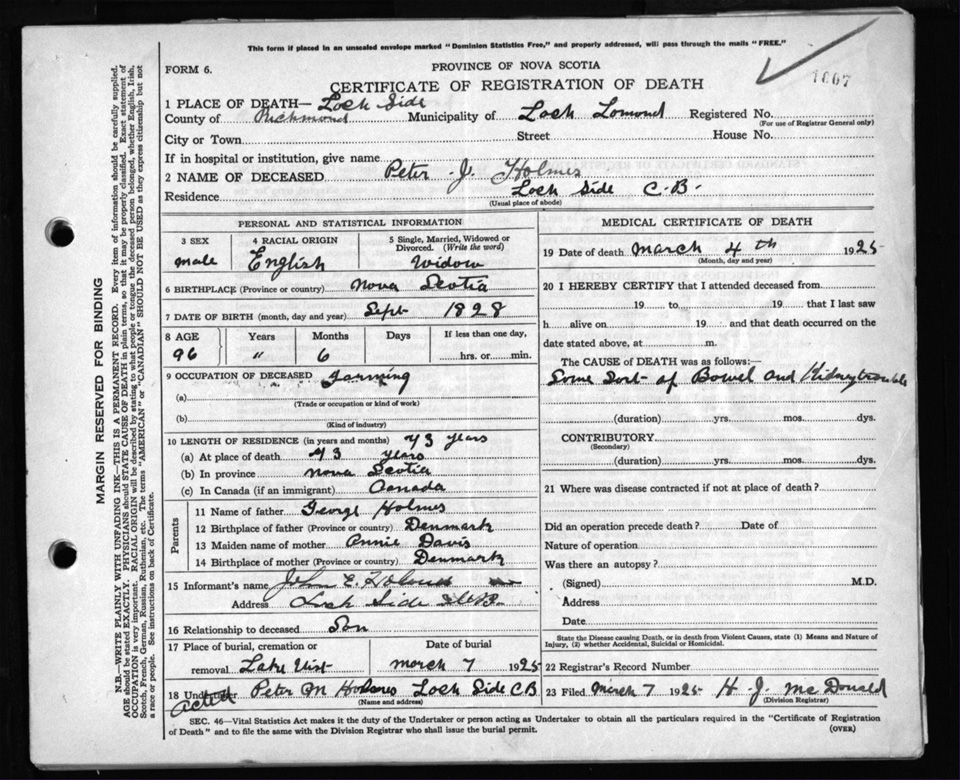 This form if placed in an unsealed envelope marked "Dominion Statistics Free," and properly addressed, will pass through the mails "FREE."
FORM 6.
PROVINCE OF NOVA SCOTIA
1607
CERTIFICATE OF REGISTRATION OF DEATH
1 PLACE OF DEATH— Loch Side
County of Richmond Municipality of Loch Lomond Registered No.
(For use of Registrar General only)
City or Town Street House No.
If in hospital or institution, give name
2 NAME OF DECEASED Peter J. Holmes
Residence Loch Side C.B.
(Usual place of abode)
PERSONAL AND STATISTICAL INFORMATION
3 SEX 4 RACIAL ORIGIN 5 Single, Married, Widowed or Divorced. (Write the word)
male English Widow
6 BIRTHPLACE (Province or country) Nova Scotia
7 DATE OF BIRTH (month, day and year) Sept 1828
8 AGE Years Months Days If less than one day,
96 " 6 hrs. or min.
9 OCCUPATION OF DECEASED Farming
(a)
(Trade or occupation or kind of work)
(b)
(Kind of industry)
10 LENGTH OF RESIDENCE (in years and months) 73 years
(a) At place of death 73 years
(b) In province Nova Scotia
(c) In Canada (if an immigrant) Canada
Parents
11 Name of father George Holmes
12 Birthplace of father (Province or country) Denmark
13 Maiden name of mother Annie Davis
14 Birthplace of mother (Province or country) Denmark
15 Informant's name John E. Holmes
Address Loch Side C.B.
16 Relationship to deceased Son
17 Place of burial, cremation or Date of burial
removal Lake Uist March 7 1925
18 Peter M Holmes Loch Side C B
(Name and address)
MEDICAL CERTIFICATE OF DEATH
19 Date of death March 4th 1925
(Month, day and year)
20 I HEREBY CERTIFY that I attended deceased from
19 to 19 that I last saw
h alive on 19 , and that death occurred on the
date stated above, at m.
The CAUSE of DEATH was as follows:—
Some Sort of Bowel and Kidney trouble
(duration) yrs. mos. dys.
CONTRIBUTORY
(Secondary)
(duration) yrs. mos. dys.
21 Where was disease contracted if not at place of death?
Did an operation precede death? Date of
Nature of operation
Was there an autopsy?
(Signed) M.D.
Address
Date
State the Disease causing Death, or in death from Violent Causes, state (1) Means and Nature of Injury, (2) whether Accidental, Suicidal or Homicidal.
22 Registrar's Record Number
23 Filed March 7 1925 H J. McDonald
(Division Registrar)
SEC. 46—Vital Statistics Act makes it the duty of the Undertaker or person acting as Undertaker to obtain all the particulars required in the "Certificate of Registration
of Death" and to file the same with the Division Registrar who shall issue the burial permit.
(OVER)
MARGIN RESERVED FOR BINDING
N.B.—WRITE PLAINLY WITH UNFADING INK—THIS IS A PERMANENT RECORD. Every item of information should be carefully supplied.
AGE should be stated EXACTLY. PHYSICIANS should STATE CAUSE OF DEATH in plain terms, so that it may be properly classified. Exact statement of
OCCUPATION is very important. RACIAL ORIGIN will be described by stating to what people or tongue the deceased person belonged, whether English, Irish,
Scotch, French, German, Russian, Ruthenian, etc. The terms "AMERICAN" or "CANADIAN" SHOULD NOT BE USED as they express citizenship but not
a race or people. See instructions on back of Certificate.